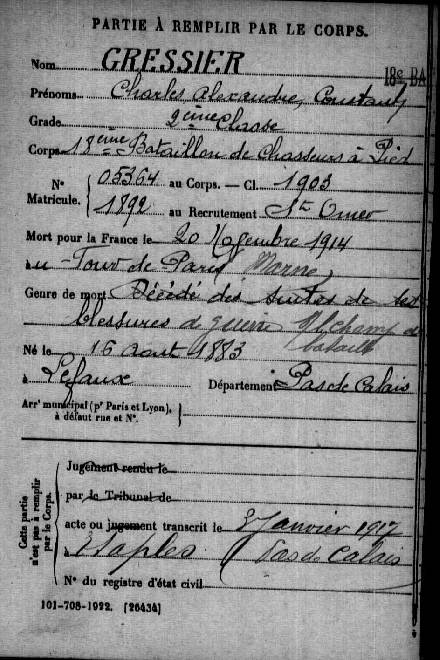 PARTIE À REMPLIR PAR LE CORPS.
Nom GRESSIER
18e BA
Prénoms Charles Alexandre, Constant
Grade 2ème Classe
Corps 18ème Bataillon de Chasseurs à Pied
N° Matricule. { 05364 au Corps. — Cl. 1903
1892 au Recrutement St Omer
Mort pour la France le 20 Novembre 1914
à u Four de Paris Marne
Genre de mort Décédé des suites de ses
blessures de guerre champ de
bataille
Né le 16 Août 1883
à Lefaux Département Pas de Calais
Arrt municipal (pr Paris et Lyon),
à défaut rue et N°.
Cette partie n'est pas à remplir par le Corps.
Jugement rendu le
par le Tribunal de
acte ou jugement transcrit le 2 Janvier 1917
à Etaples (Pas de Calais
N° du registre d'état civil
101-708-1922. [26434]